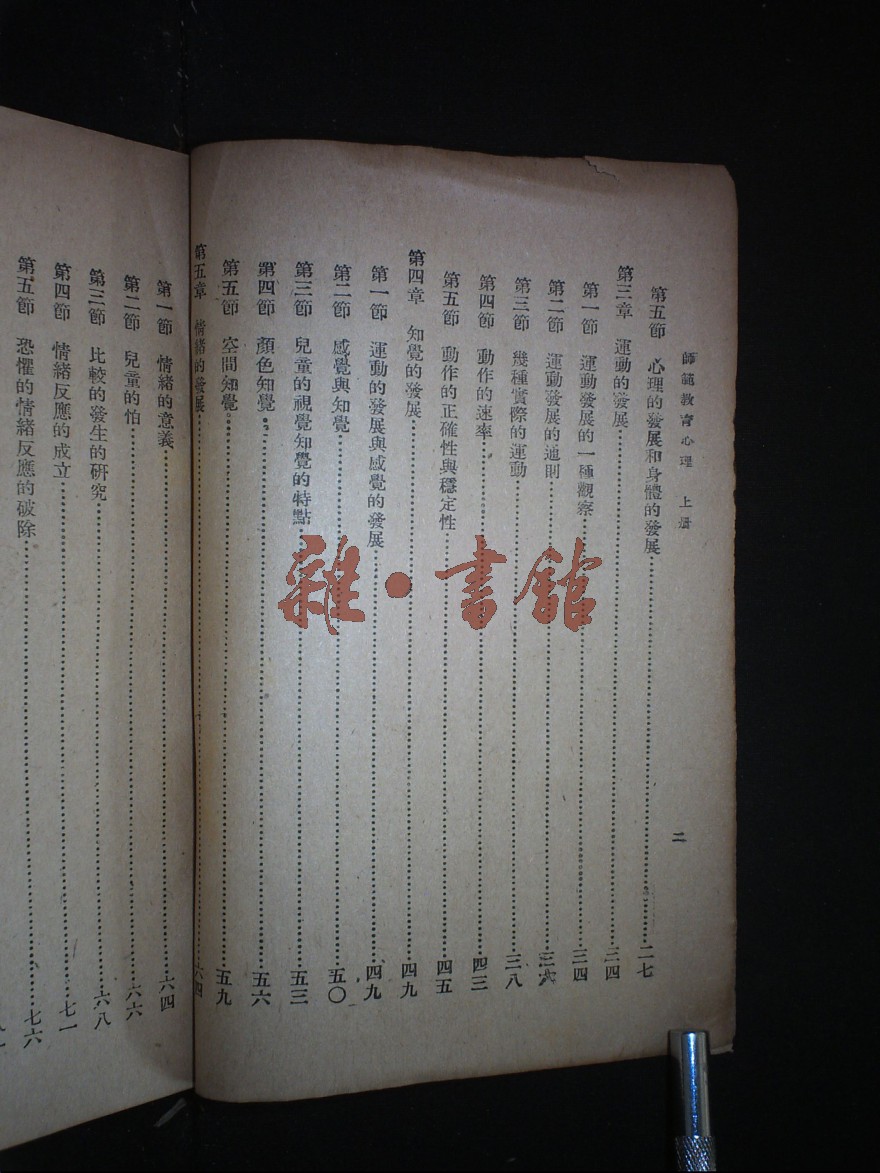 師範教育心理 上册
二
第五節 心理的發展和身體的發展……二七
第三章 運動的發展……三四
第一節 運動發展的一種觀察……三四
第二節 運動發展的通則……三六
第三節 幾種實際的運動……三八
第四節 動作的速率……四三
第五節 動作的正確性與穩定性……四五
第四章 知覺的發展……四九
第一節 運動的發展與感覺的發展……四九
第二節 感覺與知覺……五〇
第三節 兒童的視覺知覺的特點……五三
第四節 顏色知覺……五六
第五節 空間知覺……五九
第五章 情緒的發展……六四
第一節 情緒的意義……六四
第二節 兒童的怕……六六
第三節 比較的發生的研究……六八
第四節 情緒反應的成立……七一
第五節 恐懼的情緒反應的破除……七六
雜·書館